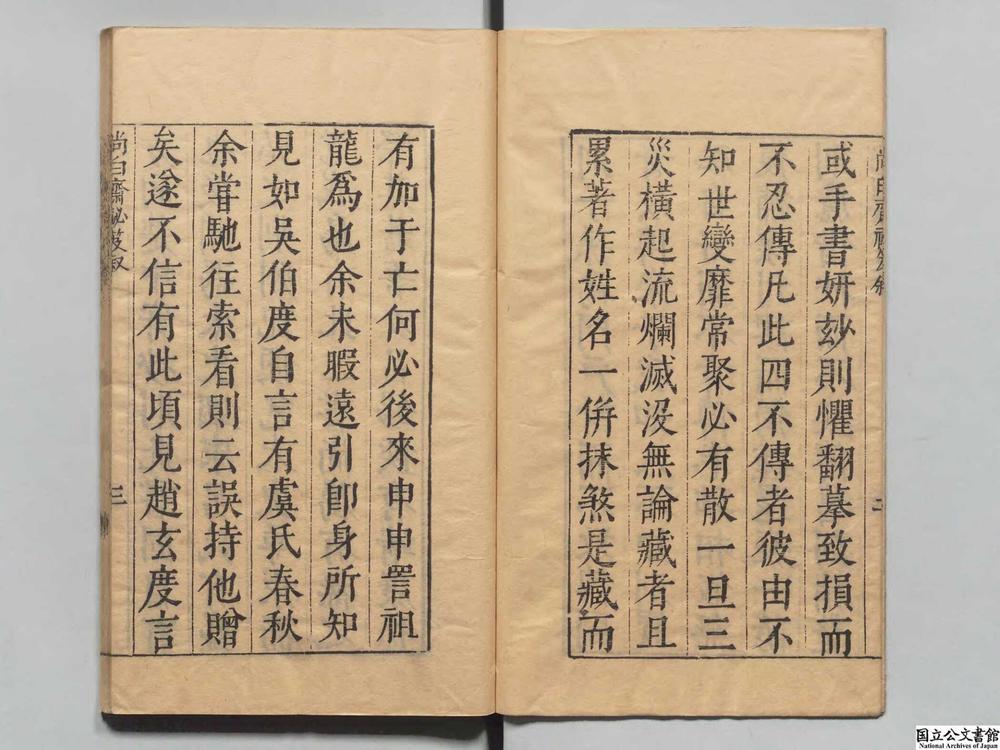 或手書妍玅則懼翻摹致損而
不忍傳凡此四不傳者彼由不
知世變靡常聚必有散一旦三
災橫起流爛滅没無論藏者且
累著作姓名一併抹煞是藏而
二
有加于亡何必後來申申詈祖
龍爲也余未暇遠引卽身所知
見如吳伯度自言有虞氏春秋
余甞馳往索看則云誤持他贈
矣遂不信有此頃見趙玄度言
尚白齋秘笈叙
三
国立公文書館
National Archives of Japan